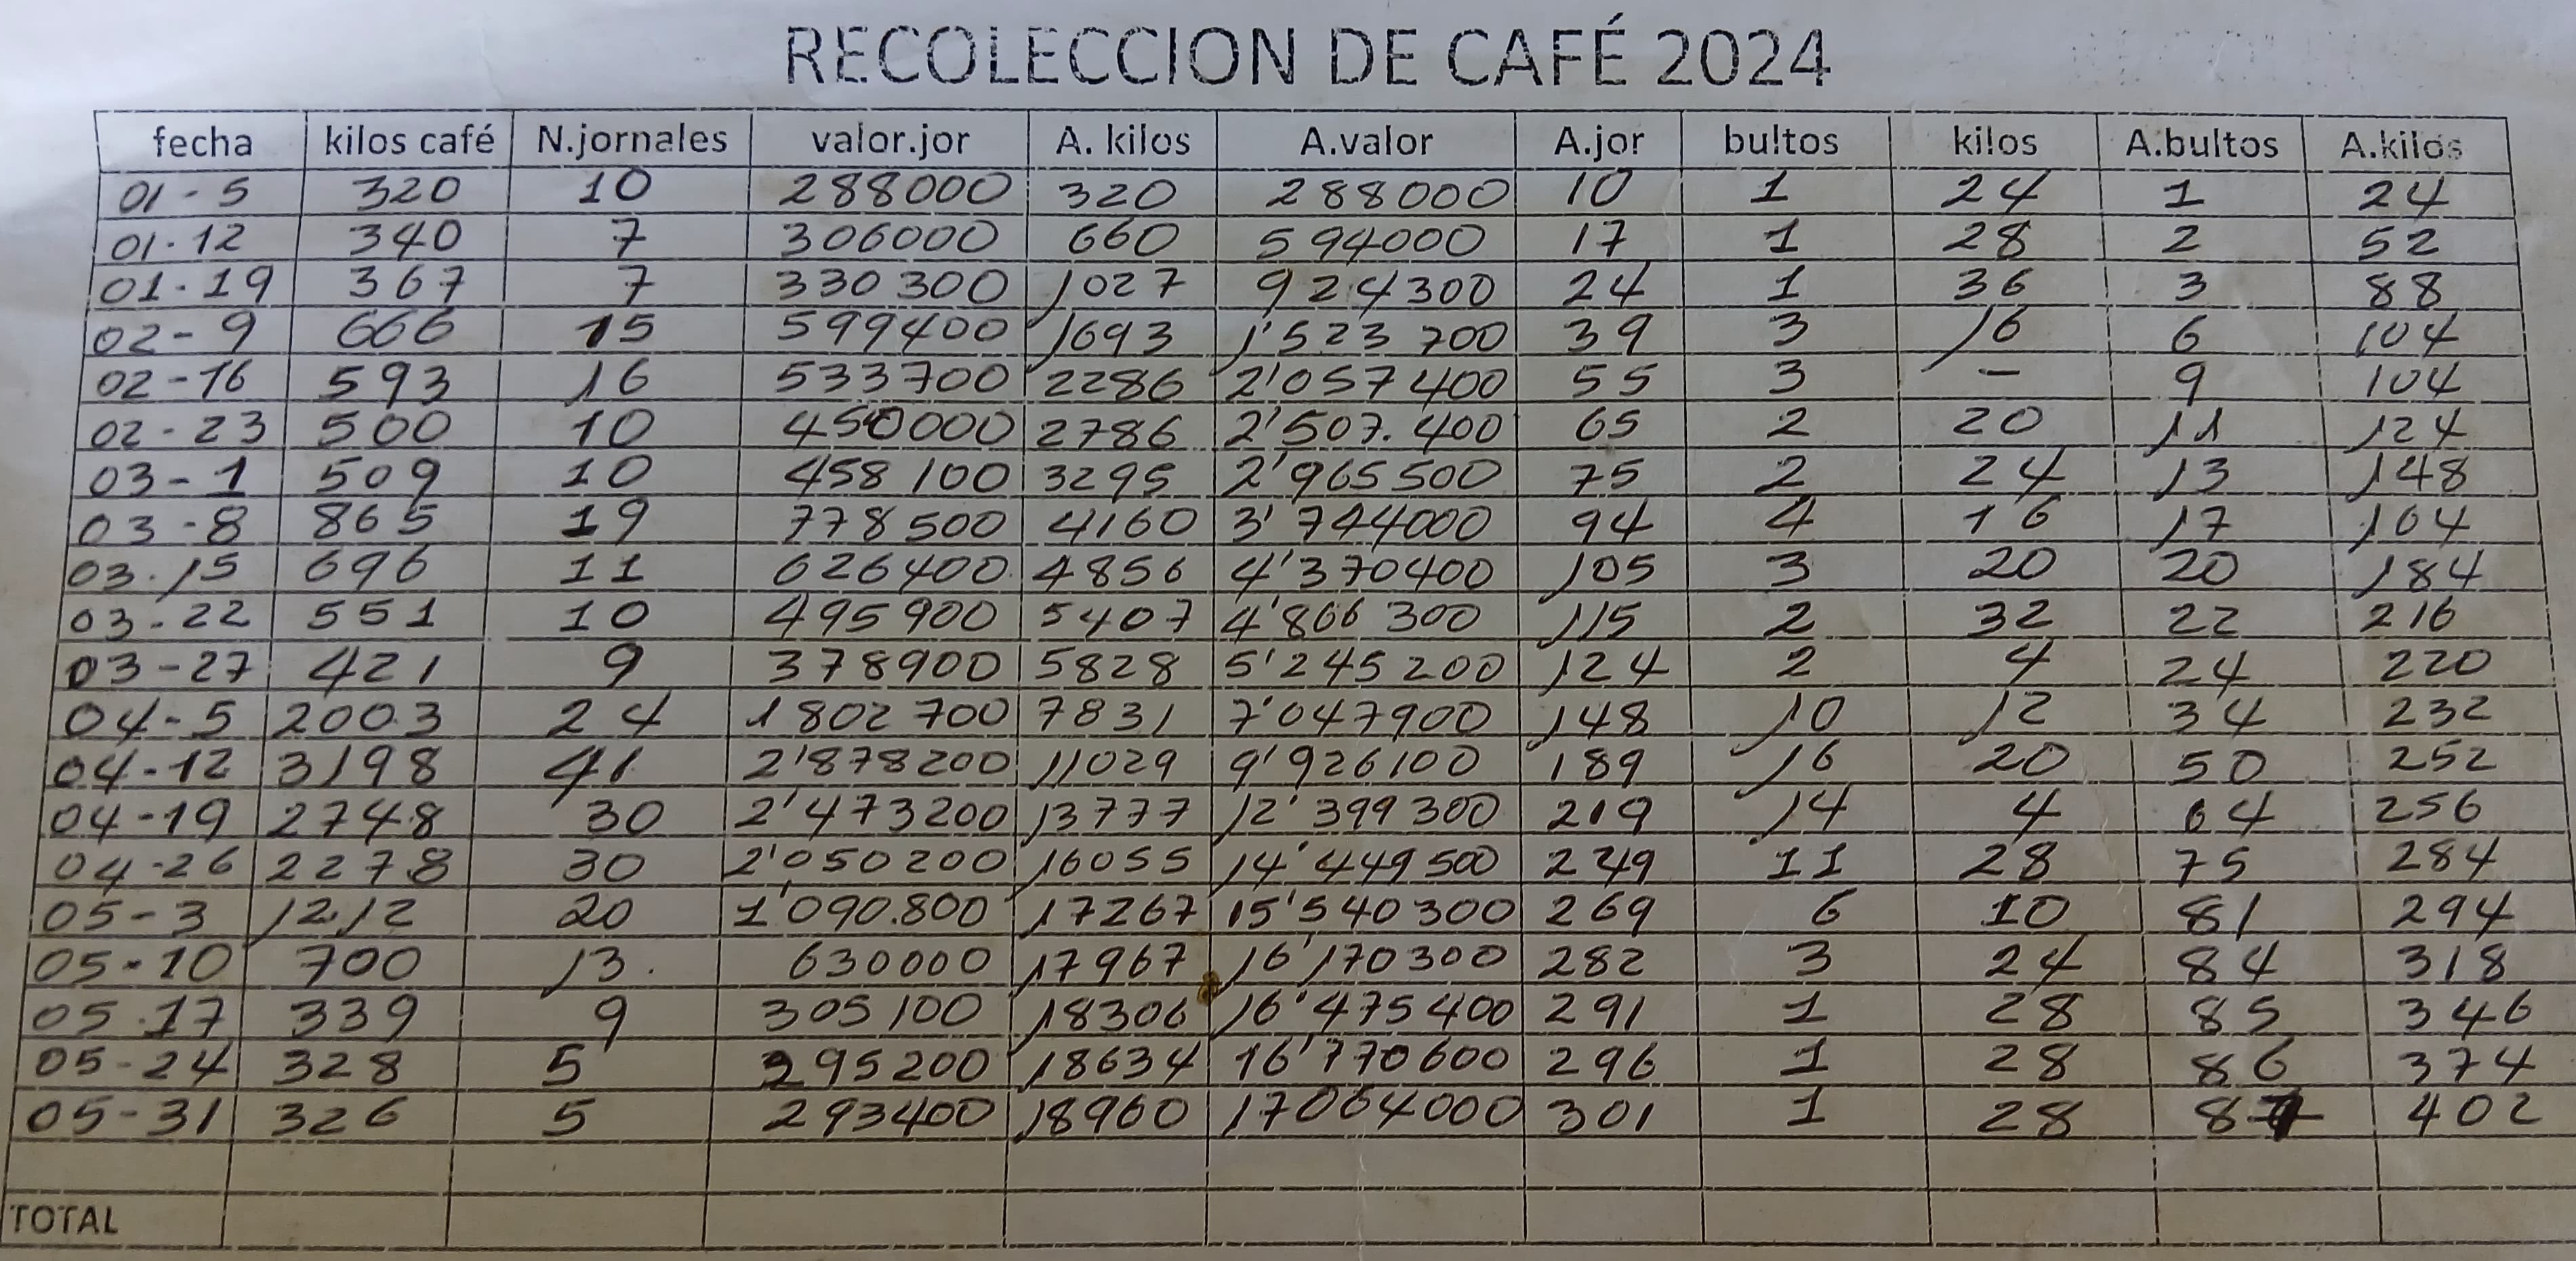 RECOLECCION DE CAFÉ 2024
fecha kilos café N.jornales valor.jor A. kilos A.valor A.jor bultos kilos A.bultos A.kilos
01-5 320 10 288000 320 288000 10 1 24 1 24
01-12 340 7 306000 660 594000 17 1 28 2 52
01-19 367 7 330300 1027 924300 24 1 36 3 88
02-9 666 15 599400 1693 1'523700 39 3 16 6 104
02-16 593 16 533700 2286 2'057400 55 3 — 9 104
02-23 500 10 450000 2786 2'507.400 65 2 20 11 124
03-1 509 10 458100 3295 2'965500 75 2 24 13 148
03-8 865 19 778500 4160 3'744000 94 4 16 17 164
03-15 696 11 626400 4856 4'370400 105 3 20 20 184
03-22 551 10 495900 5407 4'866300 115 2 32 22 216
03-27 421 9 378900 5828 5'245200 124 2 4 24 220
04-5 2003 24 1802700 7831 7'047900 148 10 12 34 232
04-12 3198 41 2'878200 11029 9'926100 189 16 20 50 252
04-19 2748 30 2'473200 13777 12'399300 219 14 4 64 256
04-26 2278 30 2'050200 16055 14'449500 249 11 28 75 284
05-3 1212 20 1'090.800 17267 15'540300 269 6 10 81 294
05-10 700 13. 630000 17967 16'170300 282 3 24 84 318
05-17 339 9 305100 18306 16'475400 291 1 28 85 346
05-24 328 5 295200 18634 16'770600 296 1 28 86 374
05-31 326 5 293400 18960 17064000 301 1 28 87 402
TOTAL